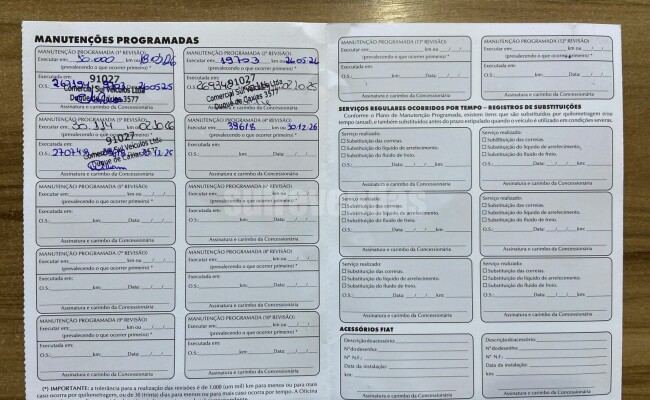 MANUTENÇÕES PROGRAMADAS
MANUTENÇÃO PROGRAMADA (1ª REVISÃO)
Executar em: 10.000 km ou
(prevalecendo o que ocorrer primeiro) *
91027
Comercial Sul Veículos Ltda
Duque de Caxias 3577
MANUTENÇÃO PROGRAMADA (2ª REVISÃO)
Executar em: 19703 km ou 26.05.26
(prevalecendo o que ocorrer primeiro) *
91027
Comercial Sul Veículos Ltda
Duque de Caxias 3577
Executar em: 30.114 02.10.26
91027
Comercial Sul Veículos Ltda
Duque de Caxias
270748
Executar em: 39618 30.12.26
(prevalecendo o que ocorrer primeiro) *
Executada em:
O.S.: km Data: __/__/__
Assinatura e carimbo da Concessionária
MANUTENÇÃO PROGRAMADA (5ª REVISÃO)
Executar em: km ou __/__/__
(prevalecendo o que ocorrer primeiro) *
Executada em:
O.S.: km Data: __/__/__
Assinatura e carimbo da Concessionária
MANUTENÇÃO PROGRAMADA (6ª REVISÃO)
Executar em: km ou __/__/__
(prevalecendo o que ocorrer primeiro) *
Executada em:
O.S.: km Data: __/__/__
Assinatura e carimbo da Concessionária
MANUTENÇÃO PROGRAMADA (7ª REVISÃO)
Executar em: km ou __/__/__
(prevalecendo o que ocorrer primeiro) *
Executada em:
O.S.: km Data: __/__/__
Assinatura e carimbo da Concessionária
MANUTENÇÃO PROGRAMADA (8ª REVISÃO)
Executar em: km ou __/__/__
(prevalecendo o que ocorrer primeiro) *
Executada em:
O.S.: km Data: __/__/__
Assinatura e carimbo da Concessionária
MANUTENÇÃO PROGRAMADA (9ª REVISÃO)
Executar em: km ou __/__/__
(prevalecendo o que ocorrer primeiro) *
Executada em:
O.S.: km Data: __/__/__
Assinatura e carimbo da Concessionária
MANUTENÇÃO PROGRAMADA (10ª REVISÃO)
Executar em: km ou __/__/__
(prevalecendo o que ocorrer primeiro) *
Executada em:
O.S.: km Data: __/__/__
Assinatura e carimbo da Concessionária
(*) IMPORTANTE: a tolerância para a realização das revisões é de 1.000 (um mil) km para menos ou para mais
caso ocorra por quilometragem, ou de 30 (trinta) dias para menos ou para mais caso ocorra por tempo. A Oficina
MANUTENÇÃO PROGRAMADA (11ª REVISÃO)
Executar em: km ou __/__/__
(prevalecendo o que ocorrer primeiro) *
Executada em:
O.S.: km Data: __/__/__
Assinatura e carimbo da Concessionária
MANUTENÇÃO PROGRAMADA (12ª REVISÃO)
Executar em: km ou __/__/__
(prevalecendo o que ocorrer primeiro) *
Executada em:
O.S.: km Data: __/__/__
Assinatura e carimbo da Concessionária
SERVIÇOS REGULARES OCORRIDOS POR TEMPO – REGISTROS DE SUBSTITUIÇÕES
Conforme o Plano de Manutenção Programada, existem itens que são substituídos por quilometragem e/ou
tempo (anual), e também substituídos antes do prazo estipulado quando o veículo é utilizado em condições severas.
Serviço realizado:
Substituição das correias.
Substituição do líquido de arrefecimento.
Substituição do fluido de freio.
O.S.: Data: __/__/__ km:
Assinatura e carimbo da Concessionária
Serviço realizado:
Substituição das correias.
Substituição do líquido de arrefecimento.
Substituição do fluido de freio.
O.S.: Data: __/__/__ km:
Assinatura e carimbo da Concessionária
Serviço realizado:
Substituição das correias.
Substituição do líquido de arrefecimento.
Substituição do fluido de freio.
O.S.: Data: __/__/__ km:
Assinatura e carimbo da Concessionária
Serviço realizado:
Substituição das correias.
Substituição do líquido de arrefecimento.
Substituição do fluido de freio.
O.S.: Data: __/__/__ km:
Assinatura e carimbo da Concessionária
Serviço realizado:
Substituição das correias.
Substituição do líquido de arrefecimento.
Substituição do fluido de freio.
O.S.: Data: __/__/__ km:
Assinatura e carimbo da Concessionária
Serviço realizado:
Substituição das correias.
Substituição do líquido de arrefecimento.
Substituição do fluido de freio.
O.S.: Data: __/__/__ km:
Assinatura e carimbo da Concessionária
ACESSÓRIOS FIAT
Descrição do acessório:
Nº do desenho:
Nº N.F.:
Data da instalação:
km:
Assinatura e carimbo da Concessionária
Descrição do acessório:
Nº do desenho:
Nº N.F.:
Data da instalação:
km:
Assinatura e carimbo da Concessionária